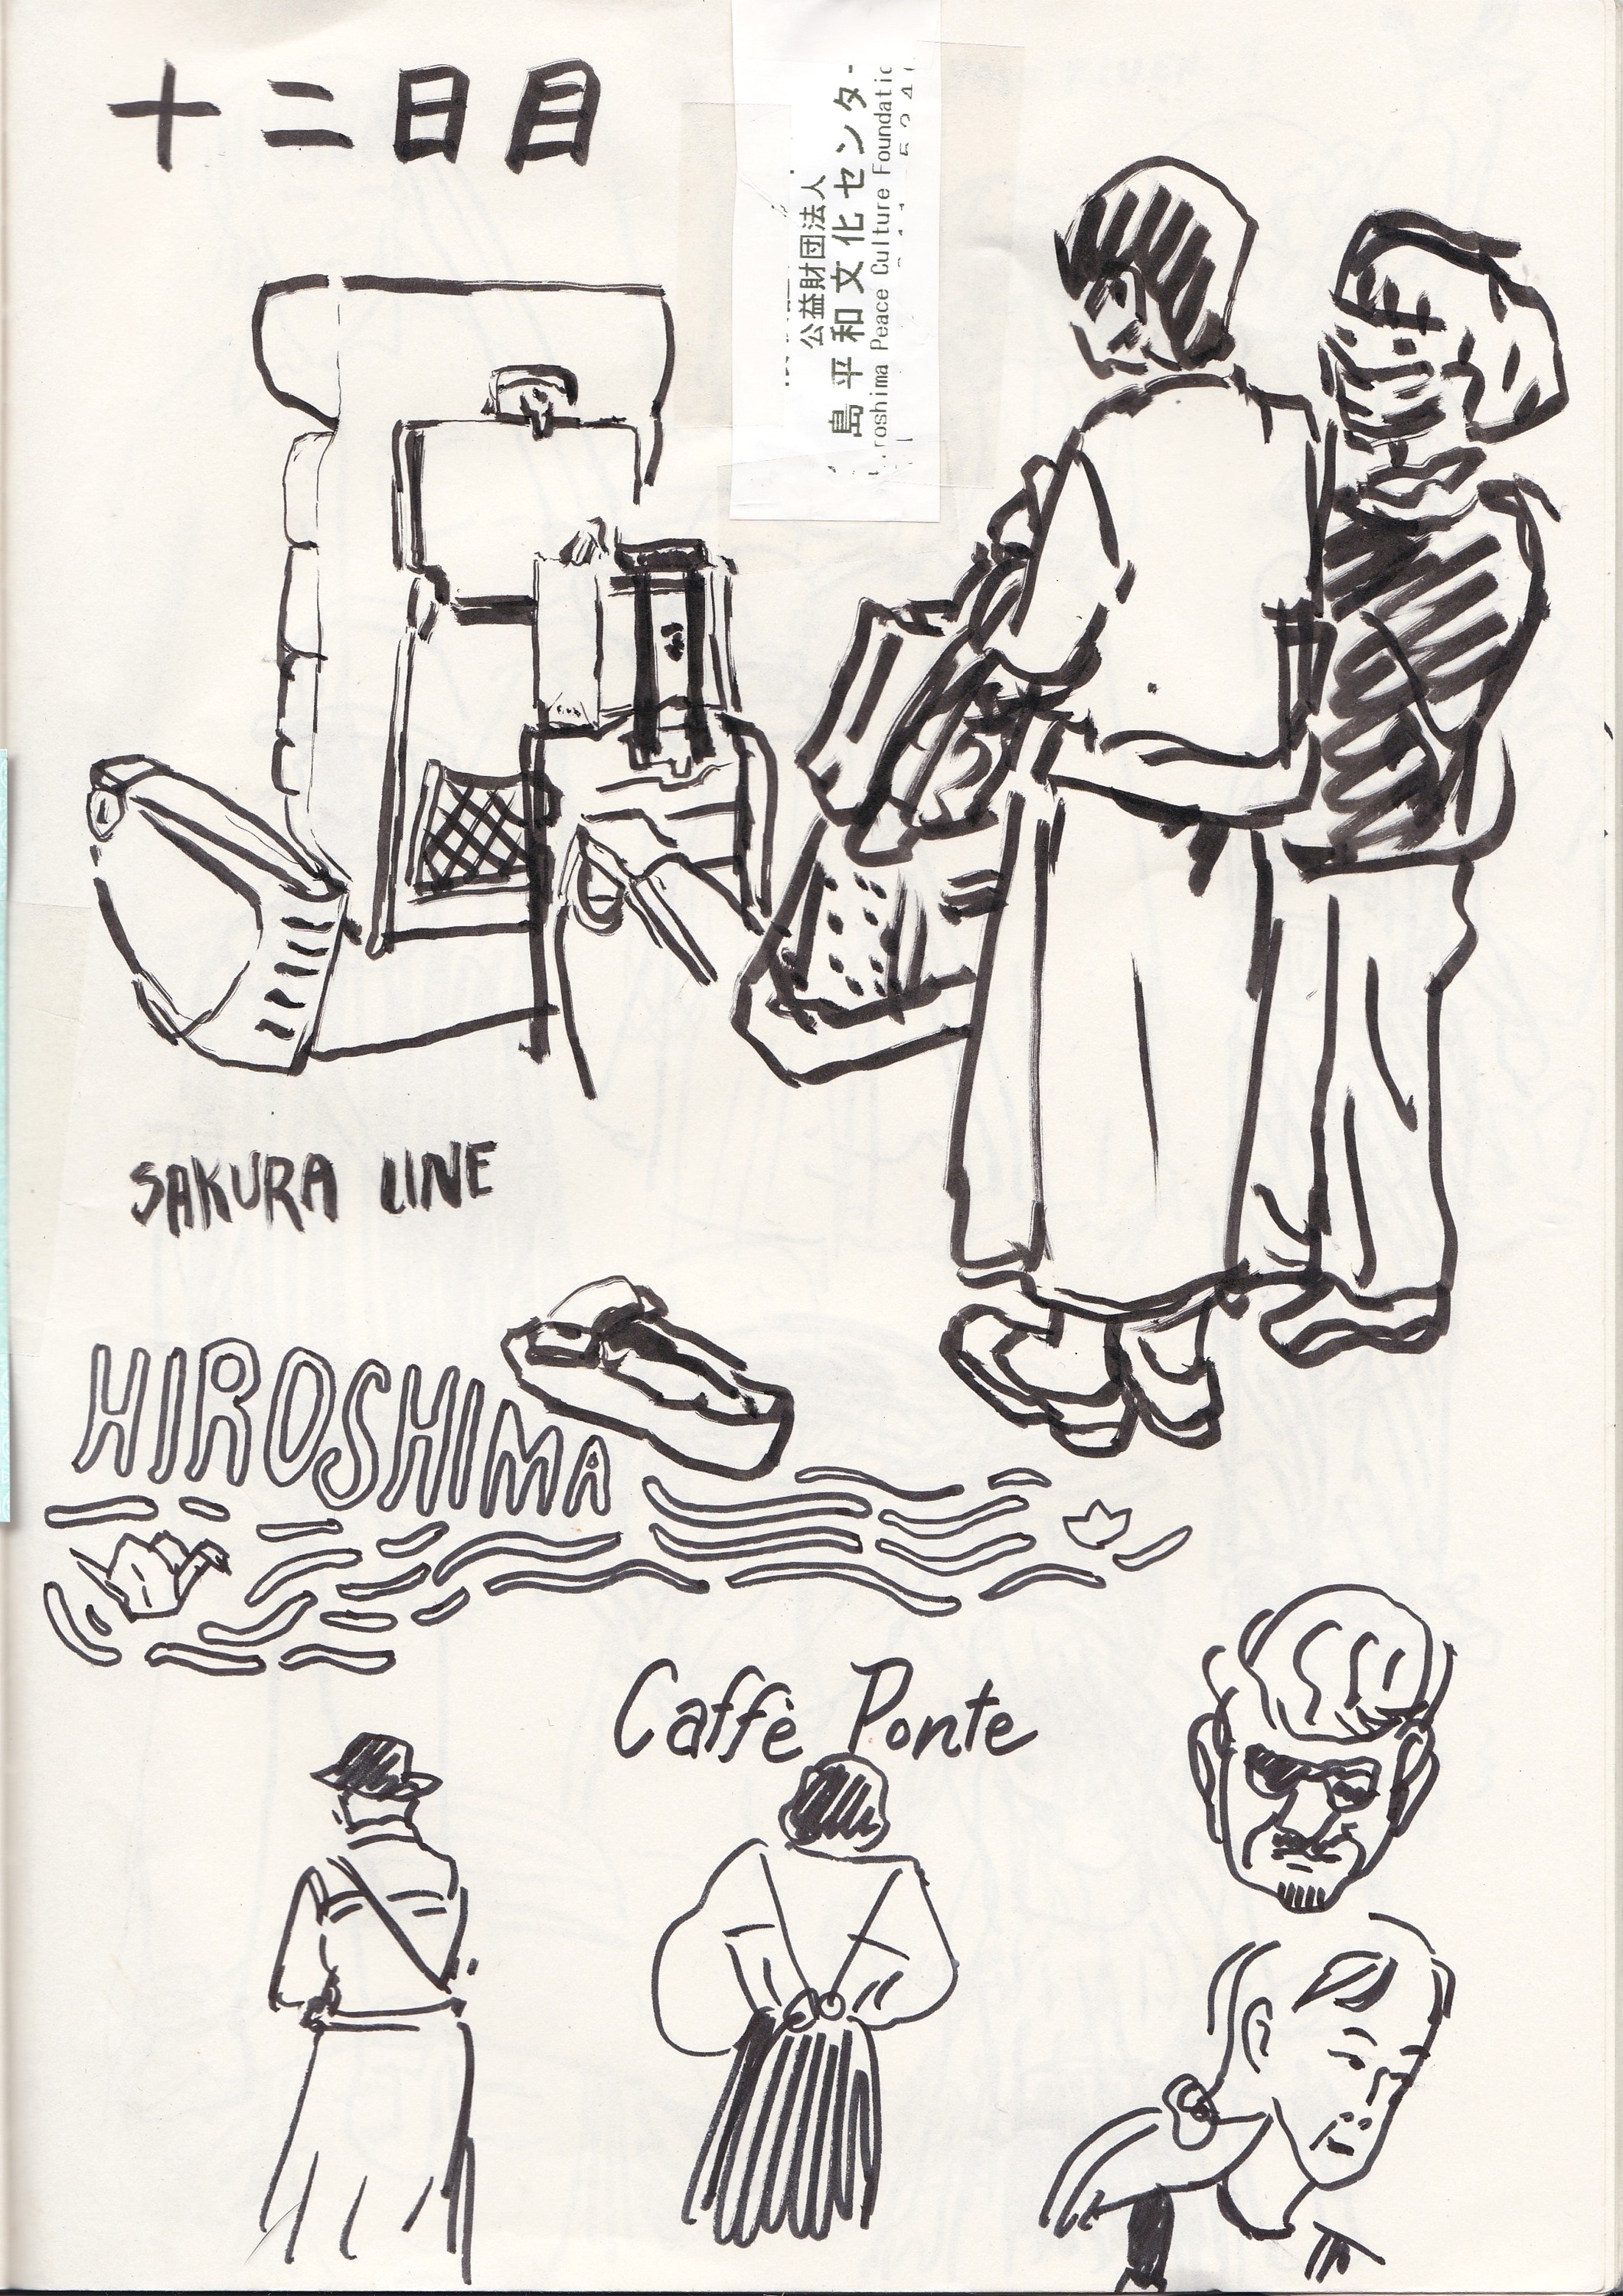 十二日目
公益財団法人
島平和文化センター
roshima Peace Culture Foundatio
SAKURA LINE
HIROSHIMA
Caffè Ponte